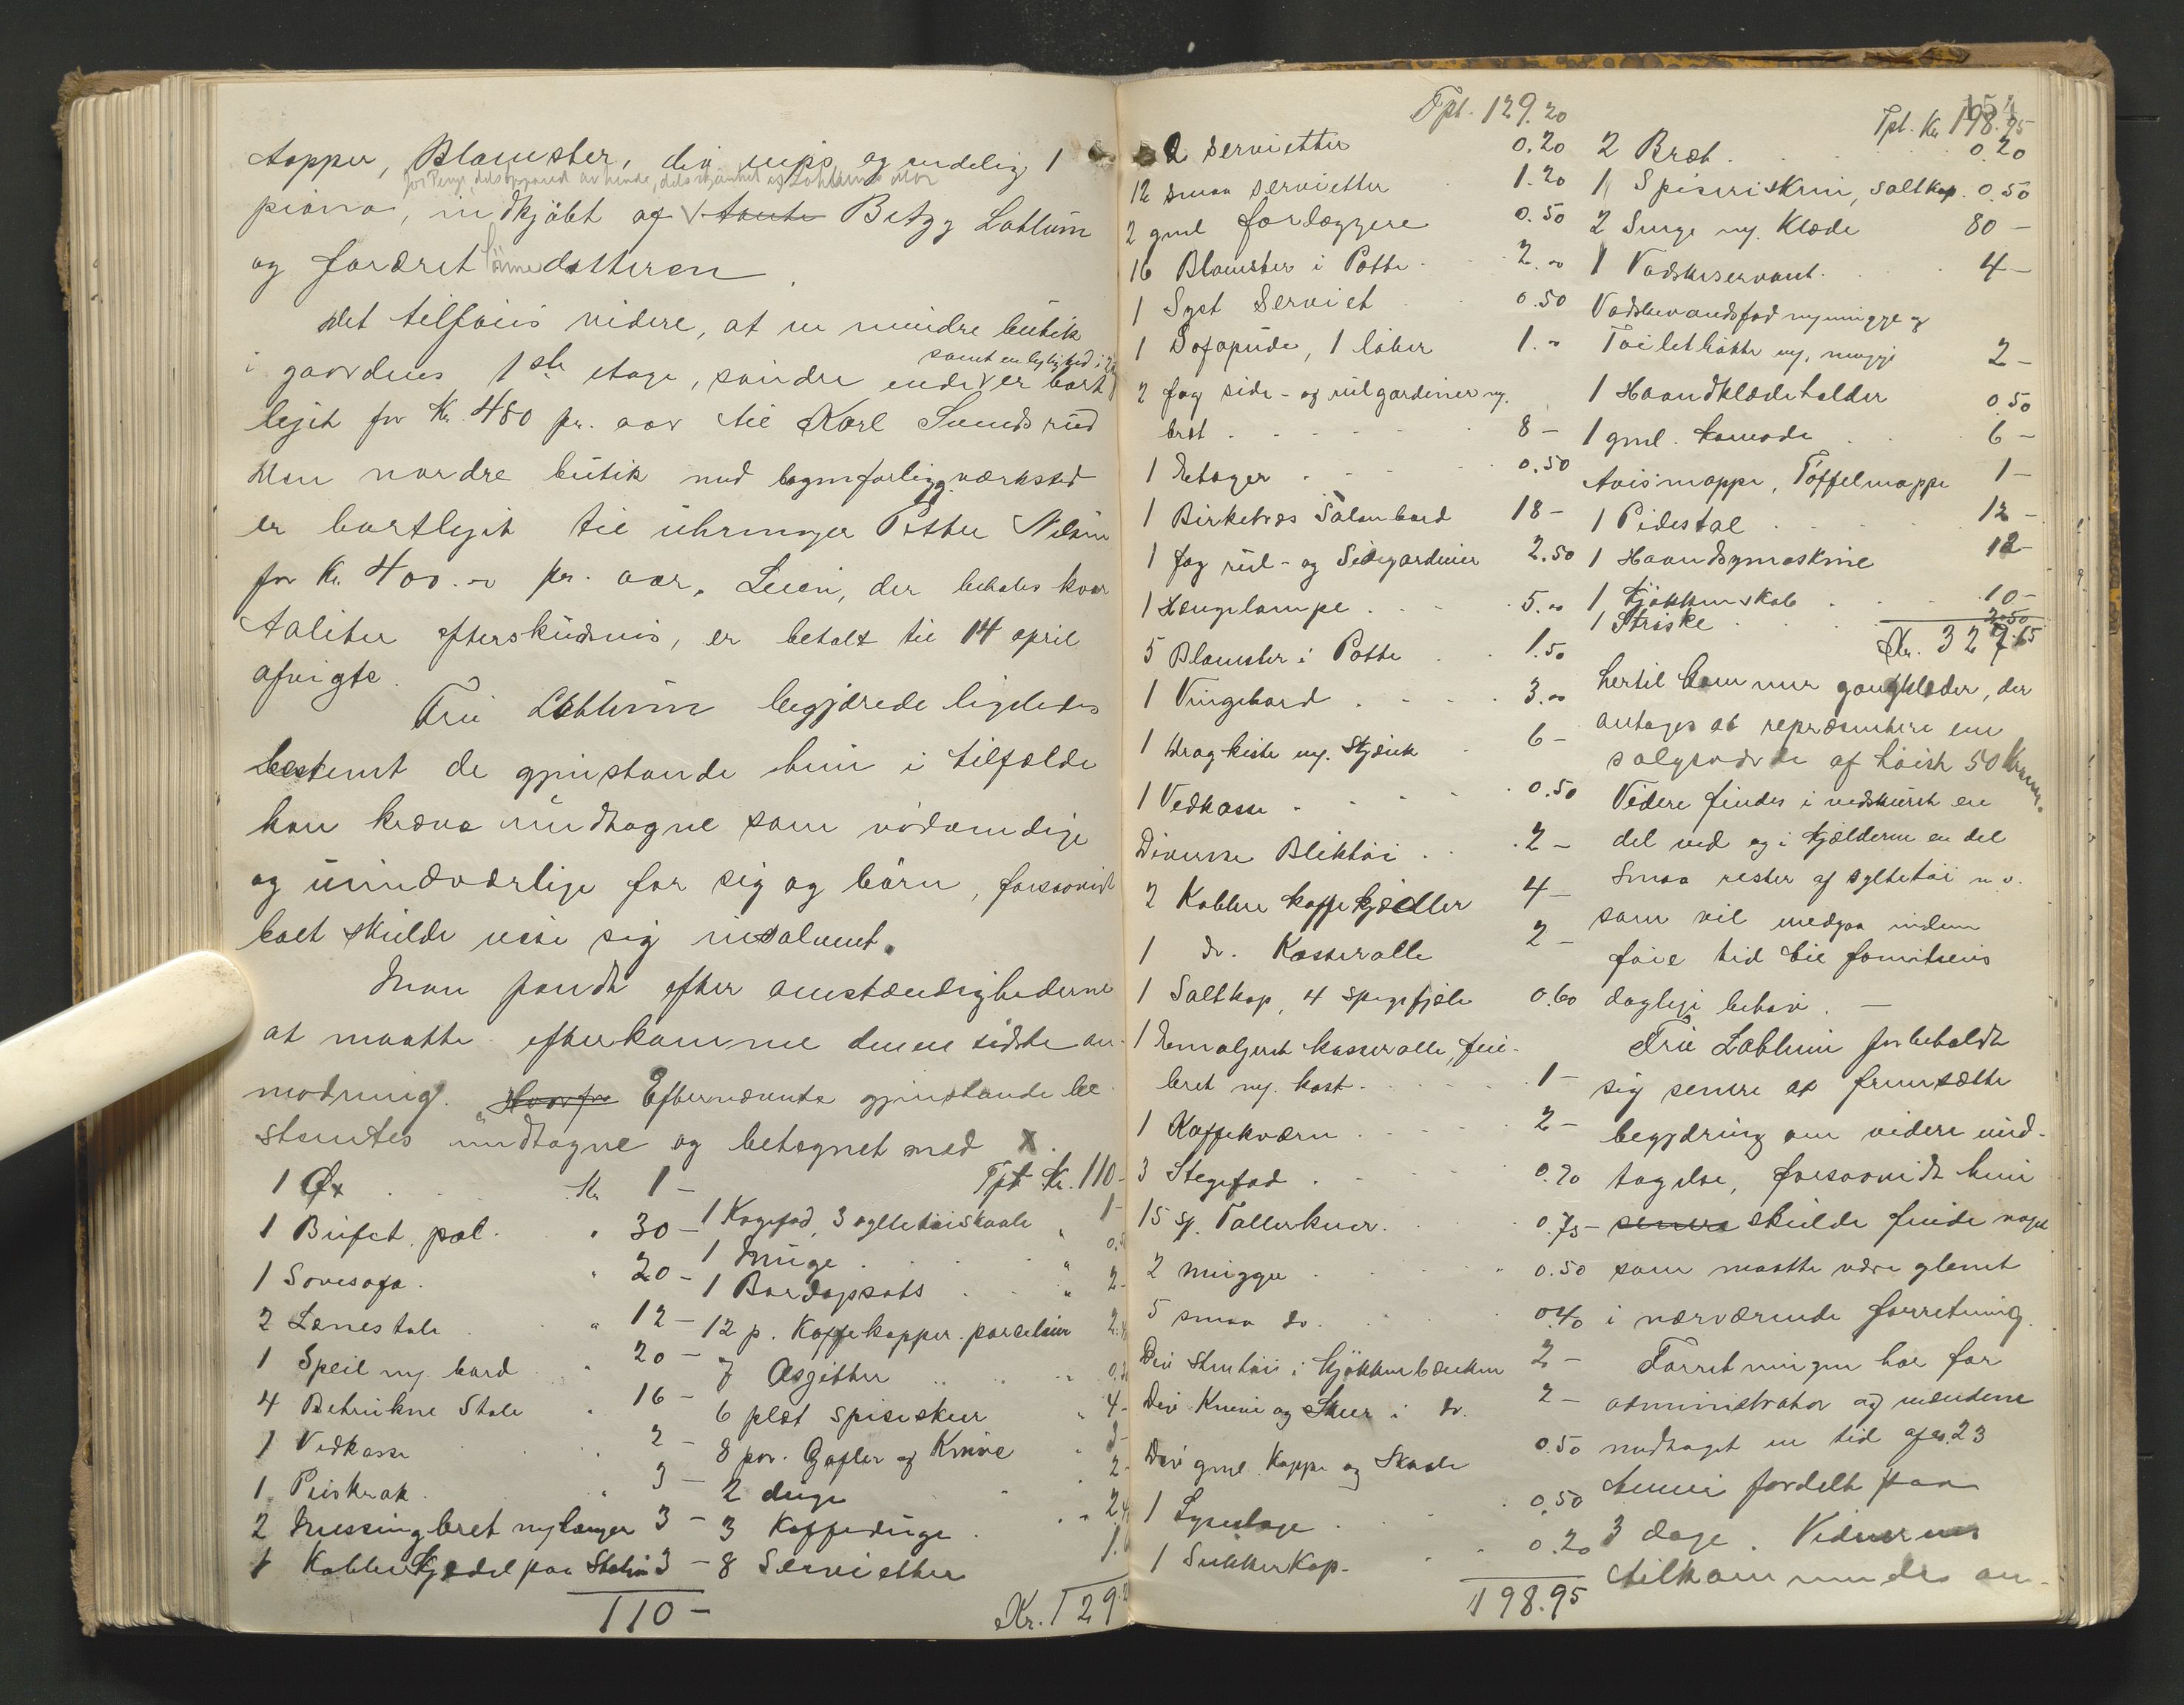 tapper, Blomster, div nips og endelig 1
for Penge, dels opsparet av hende, dels skjænket af Lohtums mor
piano, indkjøbt af tante Betzy Lohtum
og foræret datteren
Det tilføies videre, at en mindre butik
samt en leilighed i 2
i gaardens 1ste etage, søndre ende er bort
leiet for Kr. 480 pr. aar til Karl Sundsrud
Den nordre butik med bagenforligg. værksted
er bortleiet til uhrmager Petter Nilsen
for Kr. 400.00 pr. aar. Leien, der betales kvar
taliter efterskudsvis, er betalt til 14 april
afvigte.
Fru Lohtum begjærede ligeledes
bestemt de gjenstande hun i tilfælde
kan kræve undtagne som nødvendige
og uundværlige for sig og børn, forsaavidt
boet skulde vise sig insolvent.
Man fandt efter omstændighederne
at maatte efterkomme denne sidste an-
modning. Hvorfor Efternævnte gjenstande be-
stemtes undtagne og betegnet med X.
1 Øx Kr 1 -
1 Bufet. pol. " 30 -
1 Sovesofa. " 20 -
2 Lænestole " 12 -
1 Speil og bord " 20 -
4 Betrukne Stole " 16 -
1 Vedkasse 2 -
1 Peiskrak " 3 -
2 Messingbret og tænger 3 -
1 Kobberkjedel paa Stativ 3 -
110 -
Tpt Kr. 110 -
1 Kagefad, 3 syltetøiskaale " 1 -
1 Mugge "
1 Bordopsats " 2 -
12 p. Kaffekopper. porcelain
7 Asjetter
6 plet spiseskeer " 4 -
8 par. Gafler og Knive
2 duge 2 -
3 Kaffeduge
8 Servietter
Kr. 129.2
Tpt. 129.20
2 servietter 0.20
12 smaa servietter 1.20
2 gml forlæggere 0.50
16 Blomster i Potte 2.00
1 Syet Serviet 0.50
1 Sofapude, 1 løber 1.00
2 fag side- og rulgardiner og
bret 8 -
1 Etager 0.50
1 Birketræs Salonbord 18 -
1 fag rul- og Sidegardiner 2.50
1 Hængelampe 5.00
5 Blomster i Potte 1.50
1 Vringebord 3.00
1 Dragkiste og Skjænk 6 -
1 Vedkasse 0.50
Diverse Bliktøi 2 -
2 Kobber kaffekjedler 4 -
1 do. Kasserolle 2 -
1 Saltkop, 4 spegefjøle 0.60
1 Emaljeret kasserolle, feie-
bret og kost 1 -
1 Kaffekværn 2 -
3 Stegefad 0.70
15 st. Tallerkner 0.75
2 mugger 0.50
5 smaa do. 0.40
Div Stentøi i kjøkkenbænken 2 -
Div Knive og Skeer i do. 2 -
Div gml Koppe og Skaale 0.50
1 Lysestage 0.50
1 Sukkerkop 0.20
198.95
Tpt. Kr 198.95
2 Bræt 0.20
1 Spiseriskrin, saltkop 0.50
2 Senge og Klæde 80 -
1 Vadskeservant 4 -
Vadskevandsfad og mugge og
Toiletbøtte og mugge 2 -
1 Haandklædeholder 0.50
1 gml. komode 6 -
Avismappe, Tøffelmappe 1 -
1 Pidestal 12 -
1 Haandsymaskine 12 -
1 Kjøkkenskab 10 -
1 Striske 2.50
Kr. 329.65
hertil kommer gangklæder, der
antages at repræsentere en
salgsværdi af høist 50 Kroner.
Videre findes i vedskuret en
del ved og i kjælderen en del
smaa rester af syltetøi m. v.
som vil medgaa inden
føie tid til familiens
daglige behov. -
Fru Lohtum forbeholdt
sig senere at fremsætte
begjæring om videre und-
tagelse, forsaavidt hun
senere skulde finde noget
som maatte være glemt
i nærværende forretning.
Forretningen har for
administrator og mændene
medtaget en tid af ca. 23
timer fordelt paa
3 dage. Vidnernes
tilkommende an-